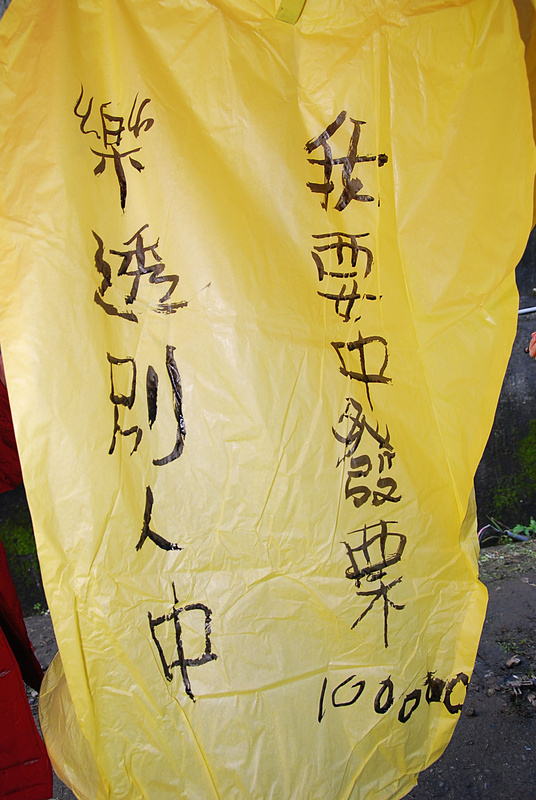 我要中發票
100000
樂透別人中